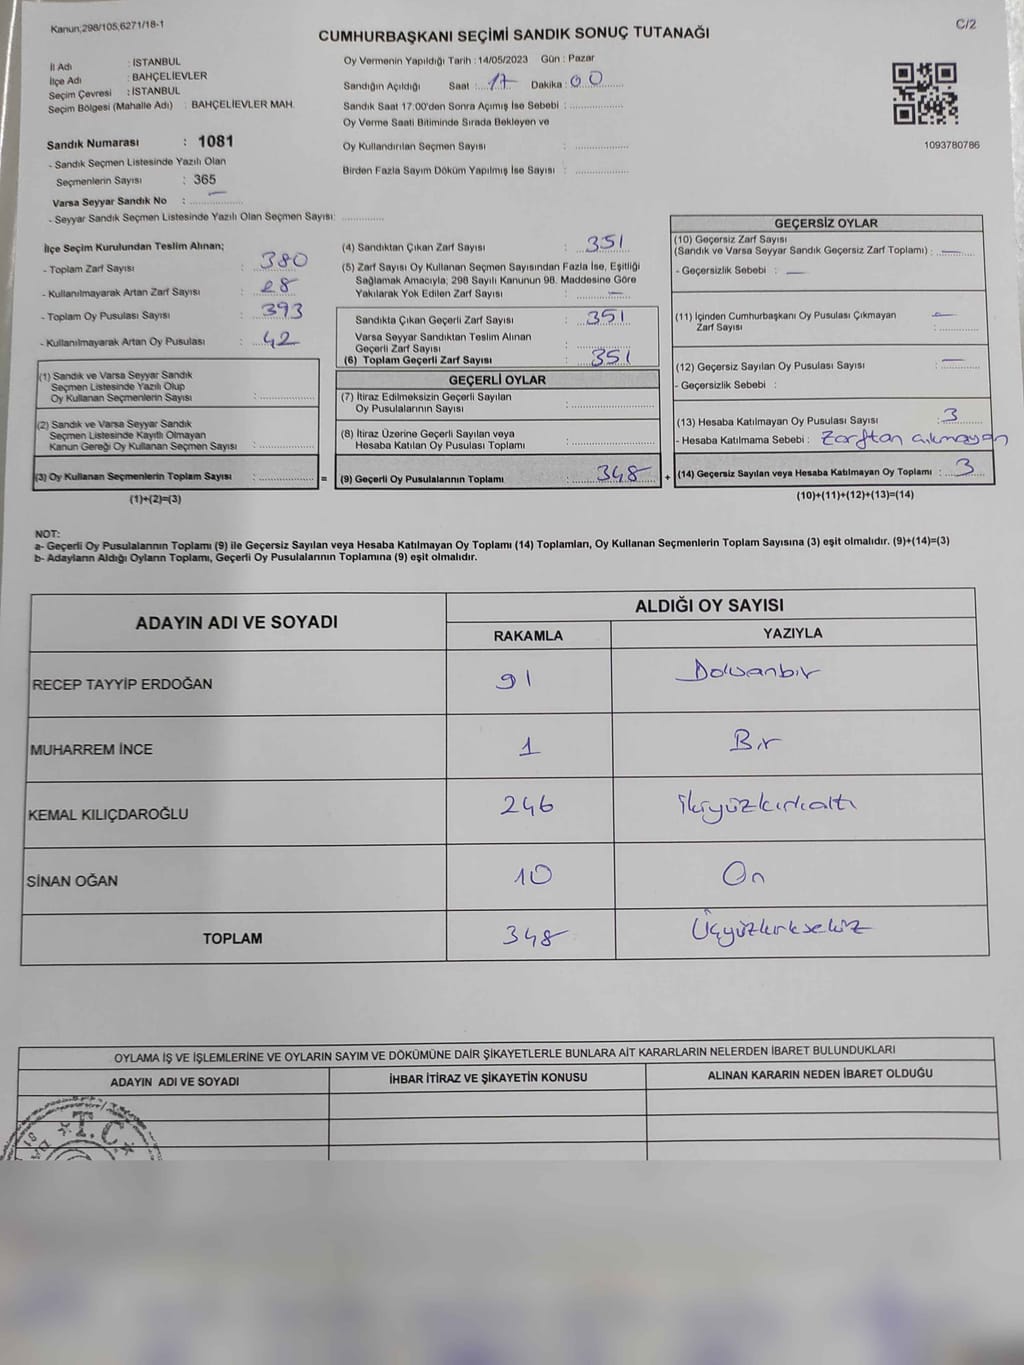 Kanun;298/105,6271/18-1
C/2
CUMHURBAŞKANI SEÇİMİ SANDIK SONUÇ TUTANAĞI
İl Adı : İSTANBUL
İlçe Adı : BAHÇELİEVLER
Seçim Çevresi : İSTANBUL
Seçim Bölgesi (Mahalle Adı) : BAHÇELİEVLER MAH.
Sandık Numarası : 1081
- Sandık Seçmen Listesinde Yazılı Olan
Seçmenlerin Sayısı : 365
Varsa Seyyar Sandık No : —
- Seyyar Sandık Seçmen Listesinde Yazılı Olan Seçmen Sayısı: ............
Oy Vermenin Yapıldığı Tarih : 14/05/2023 Gün : Pazar
Sandığın Açıldığı Saat : 17 Dakika : 00
Sandık Saat 17:00'den Sonra Açımış İse Sebebi : ...............
Oy Verme Saati Bitiminde Sırada Bekleyen ve
Oy Kullandırılan Seçmen Sayısı : ...............
Birden Fazla Sayım Döküm Yapılmış İse Sayısı : ...............
1093780786
İlçe Seçim Kurulundan Teslim Alınan;
- Toplam Zarf Sayısı : 380
- Kullanılmayarak Artan Zarf Sayısı : 28
- Toplam Oy Pusulası Sayısı : 393
- Kullanılmayarak Artan Oy Pusulası : 42
(1) Sandık ve Varsa Seyyar Sandık
Seçmen Listesinde Yazılı Olup
Oy Kullanan Seçmenlerin Sayısı : ...............
(2) Sandık ve Varsa Seyyar Sandık
Seçmen Listesinde Kayıtlı Olmayan
Kanun Gereği Oy Kullanan Seçmen Sayısı : ...............
(3) Oy Kullanan Seçmenlerin Toplam Sayısı : ...............
(1)+(2)=(3)
=
(4) Sandıktan Çıkan Zarf Sayısı : 351
(5) Zarf Sayısı Oy Kullanan Seçmen Sayısından Fazla İse, Eşitliği
Sağlamak Amacıyla; 298 Sayılı Kanunun 98. Maddesine Göre
Yakılarak Yok Edilen Zarf Sayısı : —
Sandıkta Çıkan Geçerli Zarf Sayısı : 351
Varsa Seyyar Sandıktan Teslim Alınan
Geçerli Zarf Sayısı : ...............
(6) Toplam Geçerli Zarf Sayısı : 351
GEÇERLİ OYLAR
(7) İtiraz Edilmeksizin Geçerli Sayılan
Oy Pusulalarının Sayısı : ...............
(8) İtiraz Üzerine Geçerli Sayılan veya
Hesaba Katılan Oy Pusulası Toplamı : ...............
(9) Geçerli Oy Pusulalarının Toplamı : 348
+
GEÇERSİZ OYLAR
(10) Geçersiz Zarf Sayısı
(Sandık ve Varsa Seyyar Sandık Geçersiz Zarf Toplamı) : —
- Geçersizlik Sebebi : —
(11) İçinden Cumhurbaşkanı Oy Pusulası Çıkmayan
Zarf Sayısı : —
(12) Geçersiz Sayılan Oy Pusulası Sayısı : —
- Geçersizlik Sebebi :
(13) Hesaba Katılmayan Oy Pusulası Sayısı : 3
- Hesaba Katılmama Sebebi : Zarftan çıkmayan
(14) Geçersiz Sayılan veya Hesaba Katılmayan Oy Toplamı : 3
(10)+(11)+(12)+(13)=(14)
NOT:
a- Geçerli Oy Pusulalarının Toplamı (9) ile Geçersiz Sayılan veya Hesaba Katılmayan Oy Toplamı (14) Toplamları, Oy Kullanan Seçmenlerin Toplam Sayısına (3) eşit olmalıdır. (9)+(14)=(3)
b- Adayların Aldığı Oyların Toplamı, Geçerli Oy Pusulalarının Toplamına (9) eşit olmalıdır.
ADAYIN ADI VE SOYADI
ALDIĞI OY SAYISI
RAKAMLA YAZIYLA
RECEP TAYYİP ERDOĞAN 91 Doksanbir
MUHARREM İNCE 1 Bir
KEMAL KILIÇDAROĞLU 246 ikiyüzkırkaltı
SİNAN OĞAN 10 On
TOPLAM 348 Üçyüzkırksekiz
OYLAMA İŞ VE İŞLEMLERİNE VE OYLARIN SAYIM VE DÖKÜMÜNE DAİR ŞİKAYETLERLE BUNLARA AİT KARARLARIN NELERDEN İBARET BULUNDUKLARI
ADAYIN ADI VE SOYADI İHBAR İTİRAZ VE ŞİKAYETİN KONUSU ALINAN KARARIN NEDEN İBARET OLDUĞU
T.C.